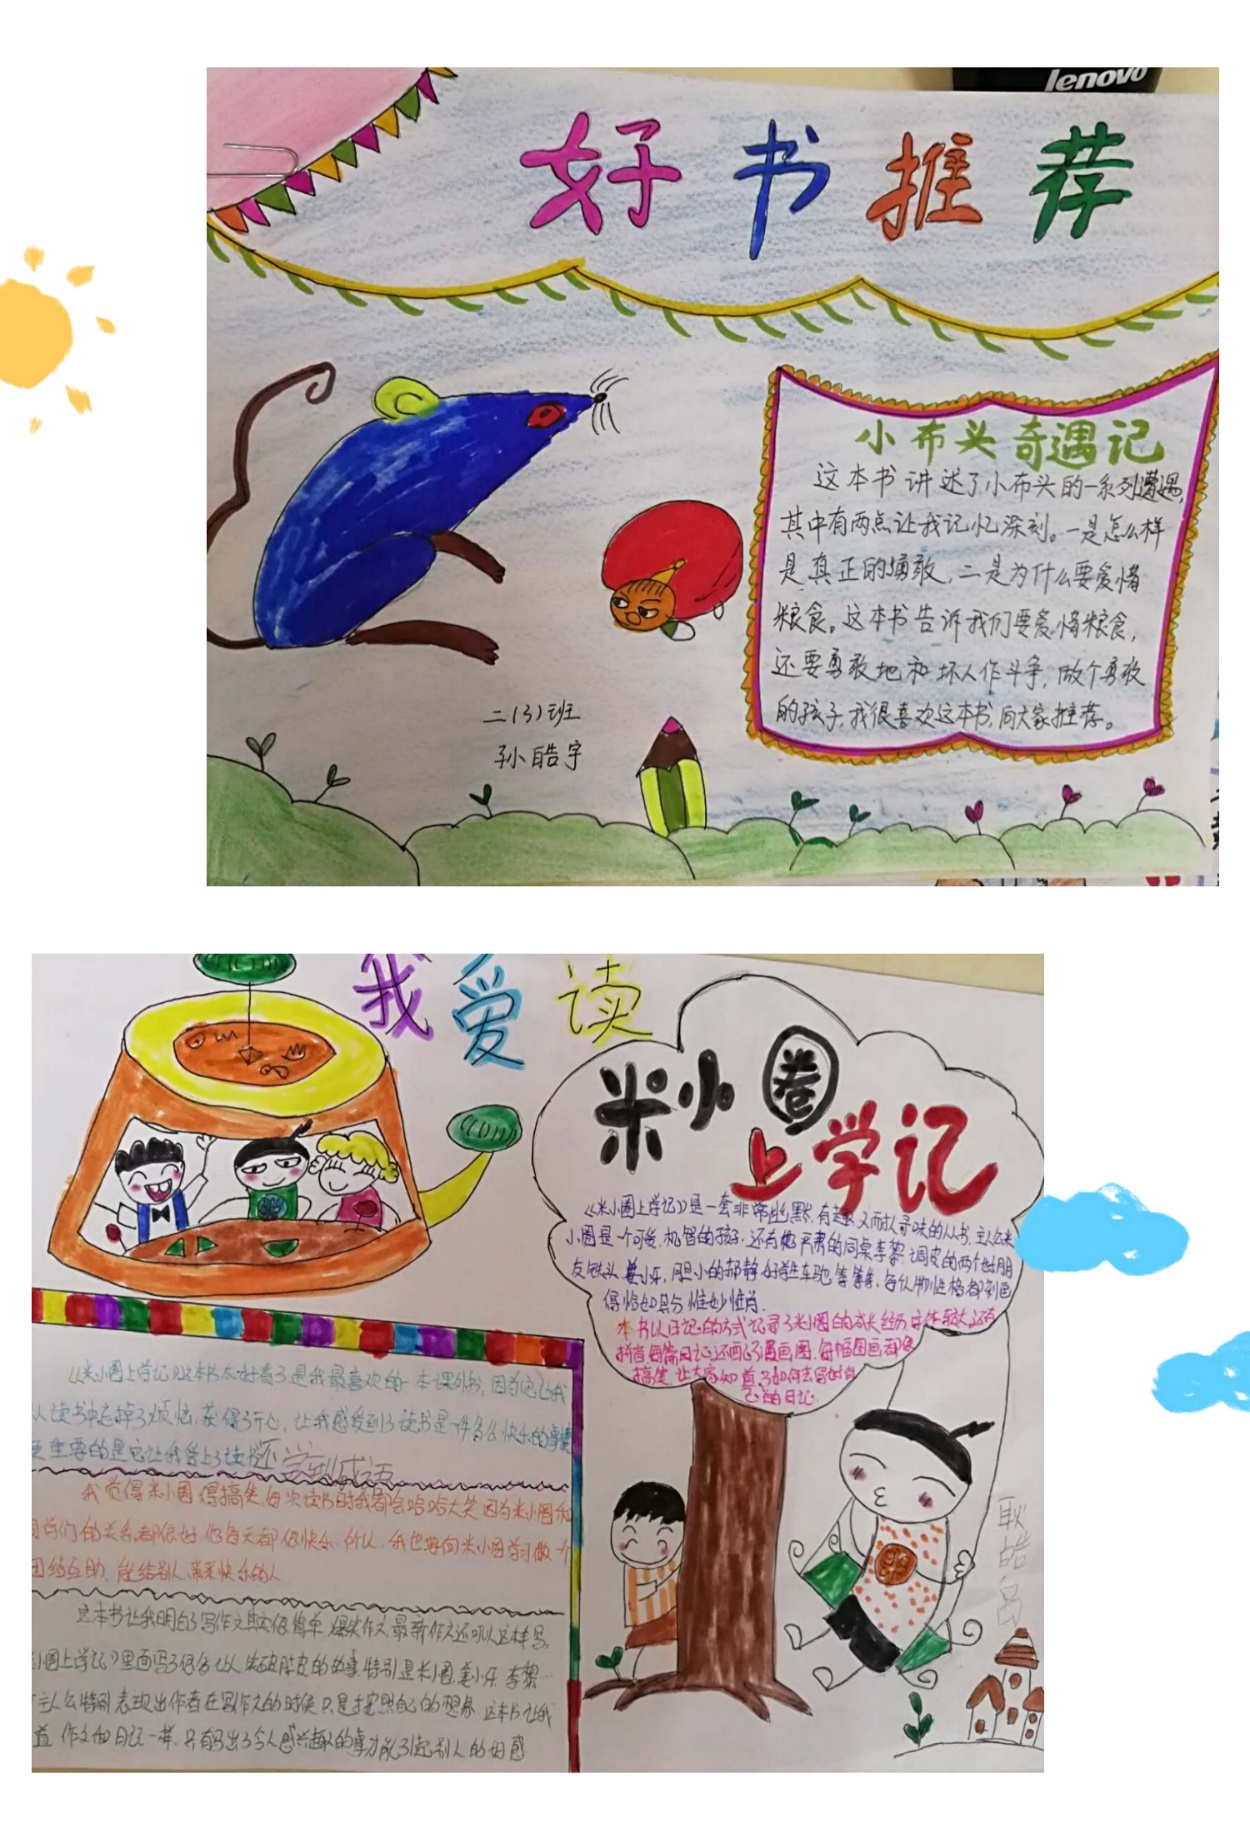 lenovo
好书推荐
小布头奇遇记
这本书讲述了小布头的一系列遭遇,
其中有两点让我记忆深刻。一是怎么样
是真正的勇敢,二是为什么要爱惜
粮食。这本书告诉我们要爱惜粮食,
还要勇敢地和坏人作斗争,做个勇敢
的孩子,我很喜欢这本书,向大家推荐。
二(3)班
孙皓宇
我爱读
米小圈
上学记
《米小圈上学记》是一套非常幽默,有趣又而耐人寻味的
小圈是一个可爱,机智的孩子,还有她严肃的同桌李黎,调皮的两个好朋
友铁头,姜小牙,胆小的郝静,好学生车驰等等等,每个人物性格都刻画
得恰如其分 惟妙惟肖.
本书以日记的方式记录了米小圈的成长经历
拼音每篇日记还配了漫画图,每幅图画都很
搞笑,让大家知道了如何去写好自
己的日记.
《米小圈上学记》这本书太好看了是我最喜欢的一本课外书,因为它让我
从读书中忘掉了烦恼,获得了开心,让我感受到了读书是一件多么快乐的事情
更重要的是它让我爱上了读书还学到成语
我觉得米小圈得搞笑,每次读书时我都会哈哈大笑因为米小圈和
同学们的关系都很好,他每天都很快乐,所以,我也要向米小圈学习做一个
团结互助,能给别人带来快乐的人
这本书让我明白了写作文其实很简单,爆笑作文,最新作文还可以这样写,
小圈上学记》里面写了很多让人 的故事特别是米小圈,姜小牙,李黎…
表现出作者在写作文的时候只是按照自己的想象 这本书让我
作文和日记一样,只有写出了令人感兴趣的事才能引起别人的好感
耿皓